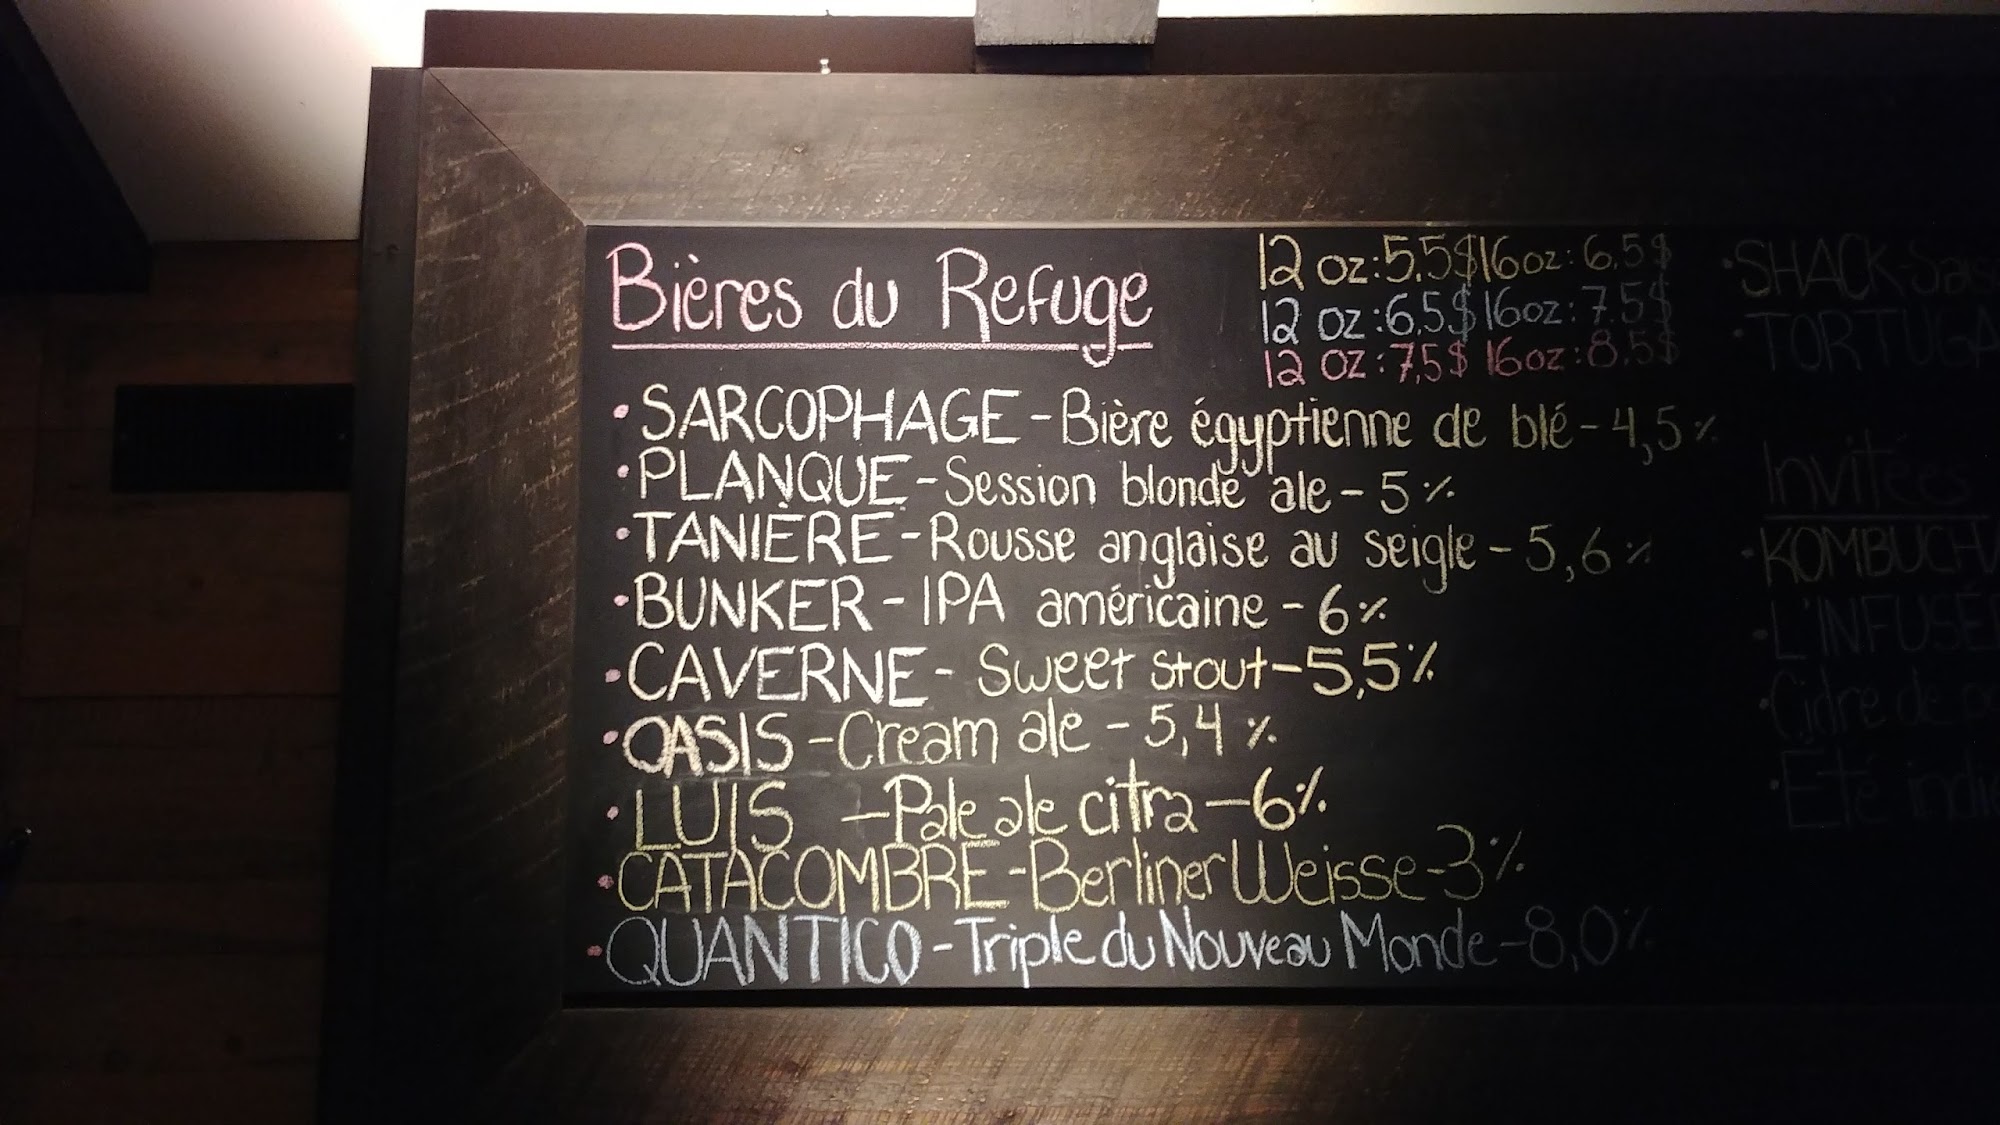 Bières du Refuge
12 oz:5,5$ 16oz: 6,5$
12 oz:6,5$ 16oz: 7,5$
12 oz:7,5$ 16oz: 8,5$
•SARCOPHAGE-Bière égyptienne de blé-4,5%
•PLANQUE-Session blonde ale-5%
•TANIÈRE-Rousse anglaise au seigle-5,6%
•BUNKER-IPA américaine-6%
•CAVERNE-Sweet stout-5,5%
•OASIS-Cream ale-5,4%
•LUIS -Pale ale citra-6%
•CATACOMBRE-Berliner Weisse-3%
•QUANTICO-Triple du Nouveau Monde-8,0%
•SHACK-
•TORTUGA
Invitées
•KOMBUCHA
•L'INFUSÉ
•Cidre de
•Eté